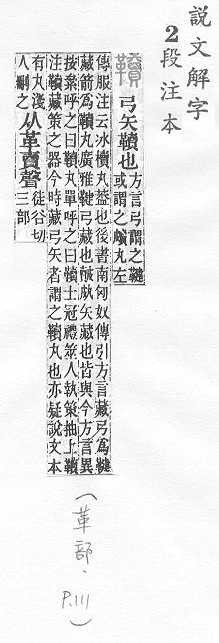 說文解字
2段注本
韇 弓矢韇也 方言弓謂之鞬
或謂之丸左
傳服注云冰丸蓋也後書南匈奴傳引方言藏弓爲鞬
藏箭爲韇丸廣雅鞬弓藏也矢藏也皆與今方言異
按絫呼之曰韇丸單呼之曰韇士冠禮筮人執筴抽上韇
注韇藏筴之器今時藏弓矢者謂之韇丸也亦疑說文本
有丸淺
人刪之
从革𧶠聲 徒谷切
三部
(革部. P.111)